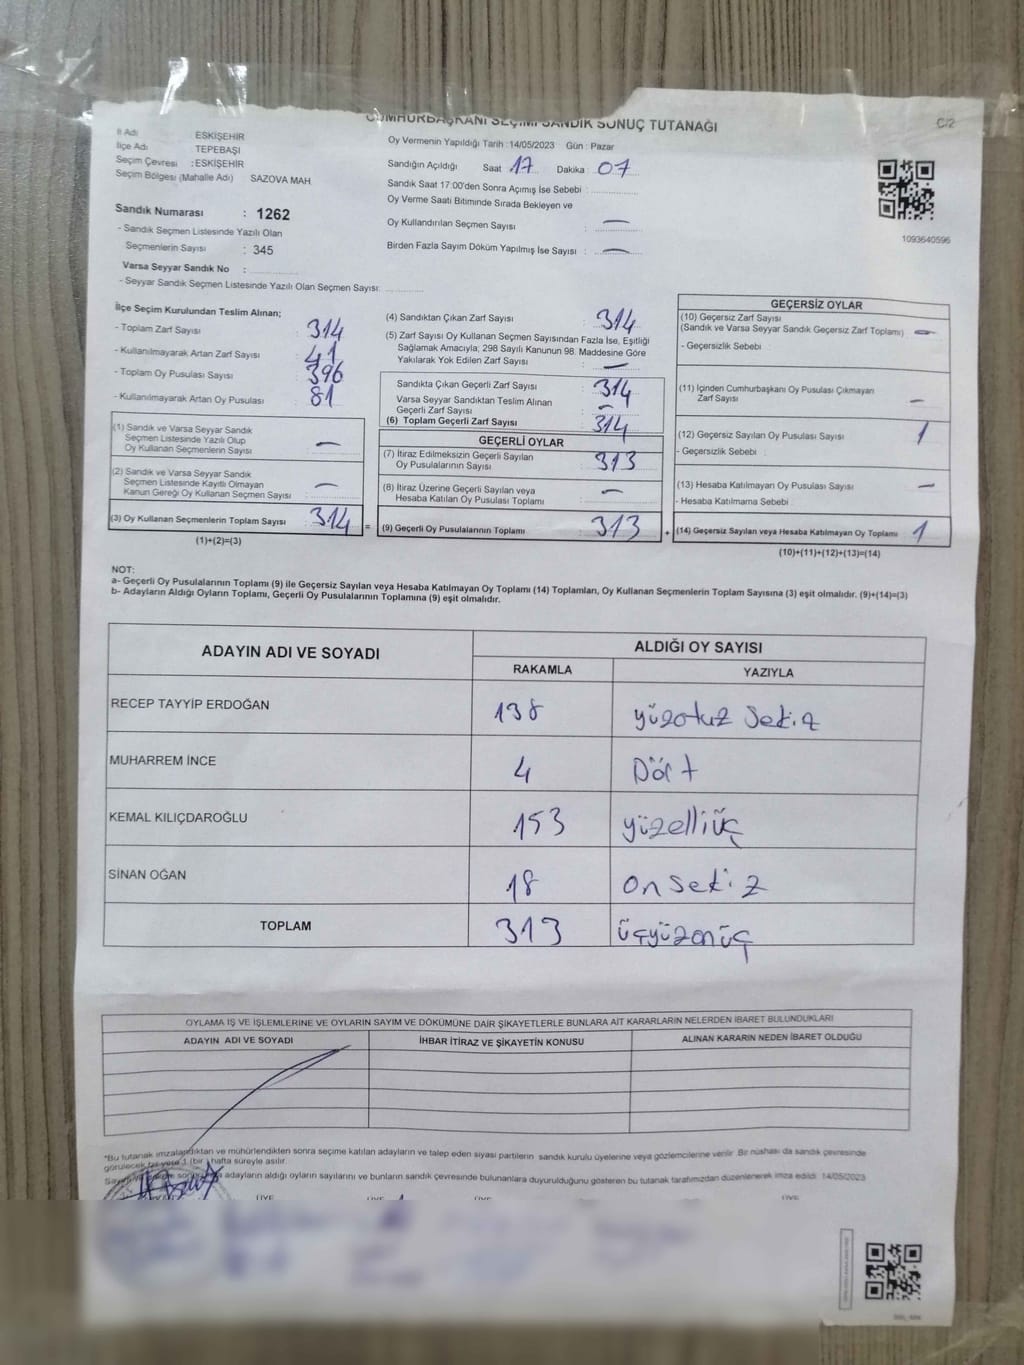 CUMHURBAŞKANI SEÇİMİ SANDIK SONUÇ TUTANAĞI
C/2
İl Adı ESKİŞEHİR
İlçe Adı TEPEBAŞI
Seçim Çevresi : ESKİŞEHİR
Seçim Bölgesi (Mahalle Adı) SAZOVA MAH
Sandık Numarası : 1262
- Sandık Seçmen Listesinde Yazılı Olan
Seçmenlerin Sayısı : 345
Varsa Seyyar Sandık No :
- Seyyar Sandık Seçmen Listesinde Yazılı Olan Seçmen Sayısı:
Oy Vermenin Yapıldığı Tarih :14/05/2023 Gün : Pazar
Sandığın Açıldığı Saat 17 Dakika 07
Sandık Saat 17:00'den Sonra Açımış İse Sebebi :
Oy Verme Saati Bitiminde Sırada Bekleyen ve
Oy Kullandırılan Seçmen Sayısı : —
Birden Fazla Sayım Döküm Yapılmış İse Sayısı : —
1093640596
İlçe Seçim Kurulundan Teslim Alınan;
- Toplam Zarf Sayısı : 314
- Kullanılmayarak Artan Zarf Sayısı : 41
- Toplam Oy Pusulası Sayısı : 396
- Kullanılmayarak Artan Oy Pusulası : 81
(1) Sandık ve Varsa Seyyar Sandık
Seçmen Listesinde Yazılı Olup
Oy Kullanan Seçmenlerin Sayısı : —
(2) Sandık ve Varsa Seyyar Sandık
Seçmen Listesinde Kayıtlı Olmayan
Kanun Gereği Oy Kullanan Seçmen Sayısı : —
(3) Oy Kullanan Seçmenlerin Toplam Sayısı : 314 =
(1)+(2)=(3)
(4) Sandıktan Çıkan Zarf Sayısı : 314
(5) Zarf Sayısı Oy Kullanan Seçmen Sayısından Fazla İse, Eşitliği
Sağlamak Amacıyla; 298 Sayılı Kanunun 98. Maddesine Göre
Yakılarak Yok Edilen Zarf Sayısı : —
Sandıkta Çıkan Geçerli Zarf Sayısı : 314
Varsa Seyyar Sandıktan Teslim Alınan
Geçerli Zarf Sayısı : —
(6) Toplam Geçerli Zarf Sayısı : 314
GEÇERLİ OYLAR
(7) İtiraz Edilmeksizin Geçerli Sayılan
Oy Pusulalarının Sayısı : 313
(8) İtiraz Üzerine Geçerli Sayılan veya
Hesaba Katılan Oy Pusulası Toplamı : —
(9) Geçerli Oy Pusulalarının Toplamı : 313 +
GEÇERSİZ OYLAR
(10) Geçersiz Zarf Sayısı
(Sandık ve Varsa Seyyar Sandık Geçersiz Zarf Toplamı) : —
- Geçersizlik Sebebi :
(11) İçinden Cumhurbaşkanı Oy Pusulası Çıkmayan
Zarf Sayısı : —
(12) Geçersiz Sayılan Oy Pusulası Sayısı : 1
- Geçersizlik Sebebi :
(13) Hesaba Katılmayan Oy Pusulası Sayısı : —
- Hesaba Katılmama Sebebi :
(14) Geçersiz Sayılan veya Hesaba Katılmayan Oy Toplamı : 1
(10)+(11)+(12)+(13)=(14)
NOT:
a- Geçerli Oy Pusulalarının Toplamı (9) ile Geçersiz Sayılan veya Hesaba Katılmayan Oy Toplamı (14) Toplamları, Oy Kullanan Seçmenlerin Toplam Sayısına (3) eşit olmalıdır. (9)+(14)=(3)
b- Adayların Aldığı Oyların Toplamı, Geçerli Oy Pusulalarının Toplamına (9) eşit olmalıdır.
ADAYIN ADI VE SOYADI ALDIĞI OY SAYISI
RAKAMLA YAZIYLA
RECEP TAYYİP ERDOĞAN 138 yüzotuz sekiz
MUHARREM İNCE 4 Dört
KEMAL KILIÇDAROĞLU 153 yüzelliüç
SİNAN OĞAN 18 onsekiz
TOPLAM 313 üçyüzonüç
OYLAMA İŞ VE İŞLEMLERİNE VE OYLARIN SAYIM VE DÖKÜMÜNE DAİR ŞİKAYETLERLE BUNLARA AİT KARARLARIN NELERDEN İBARET BULUNDUKLARI
ADAYIN ADI VE SOYADI İHBAR İTİRAZ VE ŞİKAYETİN KONUSU ALINAN KARARIN NEDEN İBARET OLDUĞU
*Bu tutanak imzalandıktan ve mühürlendikten sonra seçime katılan adayların ve talep eden siyasi partilerin sandık kurulu üyelerine veya gözlemcilerine verilir. Bir nüshası da sandık çevresinde
görülecek bir yere 1 (bir) hafta süreyle asılır.
adayların aldığı oyların sayılarını ve bunların sandık çevresinde bulunanlara duyurulduğunu gösteren bu tutanak tarafımızdan düzenlenerek imza edildi. 14/05/2023
ÜYE ÜYE ÜYE ÜYE